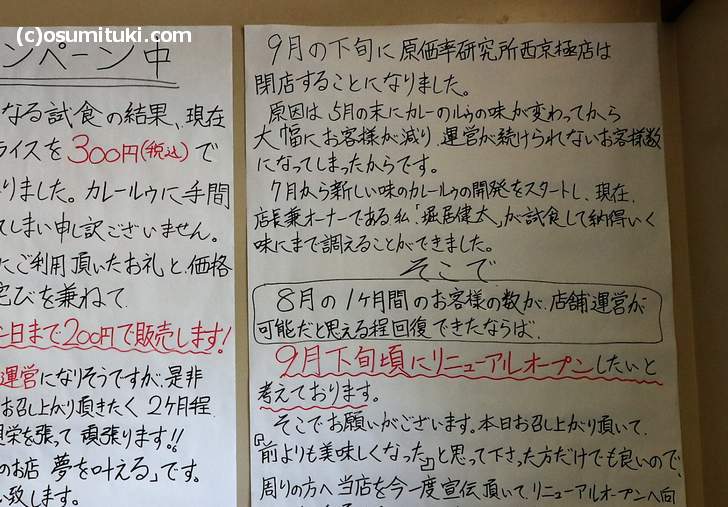 (c)osumituki.com
ンペーン中
なる試食の結果、現在
ライスを300円(税込)で
りました。カレールゥに手間
てしまい申し訳ございません。
にご利用頂いたお礼と、価格
詫びを兼ねて、
日まで200円で販売します!
運営になりそうですが、是非
お召し上がり頂きたく2ヶ月程
見栄を張って頑張ります!!
のお店 夢を叶える」です。
い致します。
9月の下旬に原価率研究所西京極店は
閉店することになりました。
原因は、5月の末にカレーのルゥの味が変わってから
大幅にお客様が減り、運営が続けられないお客様数
になってしまったからです。
7月から新しい味のカレールゥの開発をスタートし、現在、
店長兼オーナーである私「堀居健太」が試食して納得いく
味にまで調えることができました。
そこで
8月の1ヶ月間のお客様の数が、店舗運営が
可能だと思える程回復できたならば、
9月下旬頃にリニューアルオープンしたいと
考えております。
そこでお願いがございます。本日お召し上がり頂いて、
『前よりも美味しくなった』と思って下さった方だけでも良いので、
周りの方へ当店を今一度宣伝頂いて、リニューアルオープンへ向